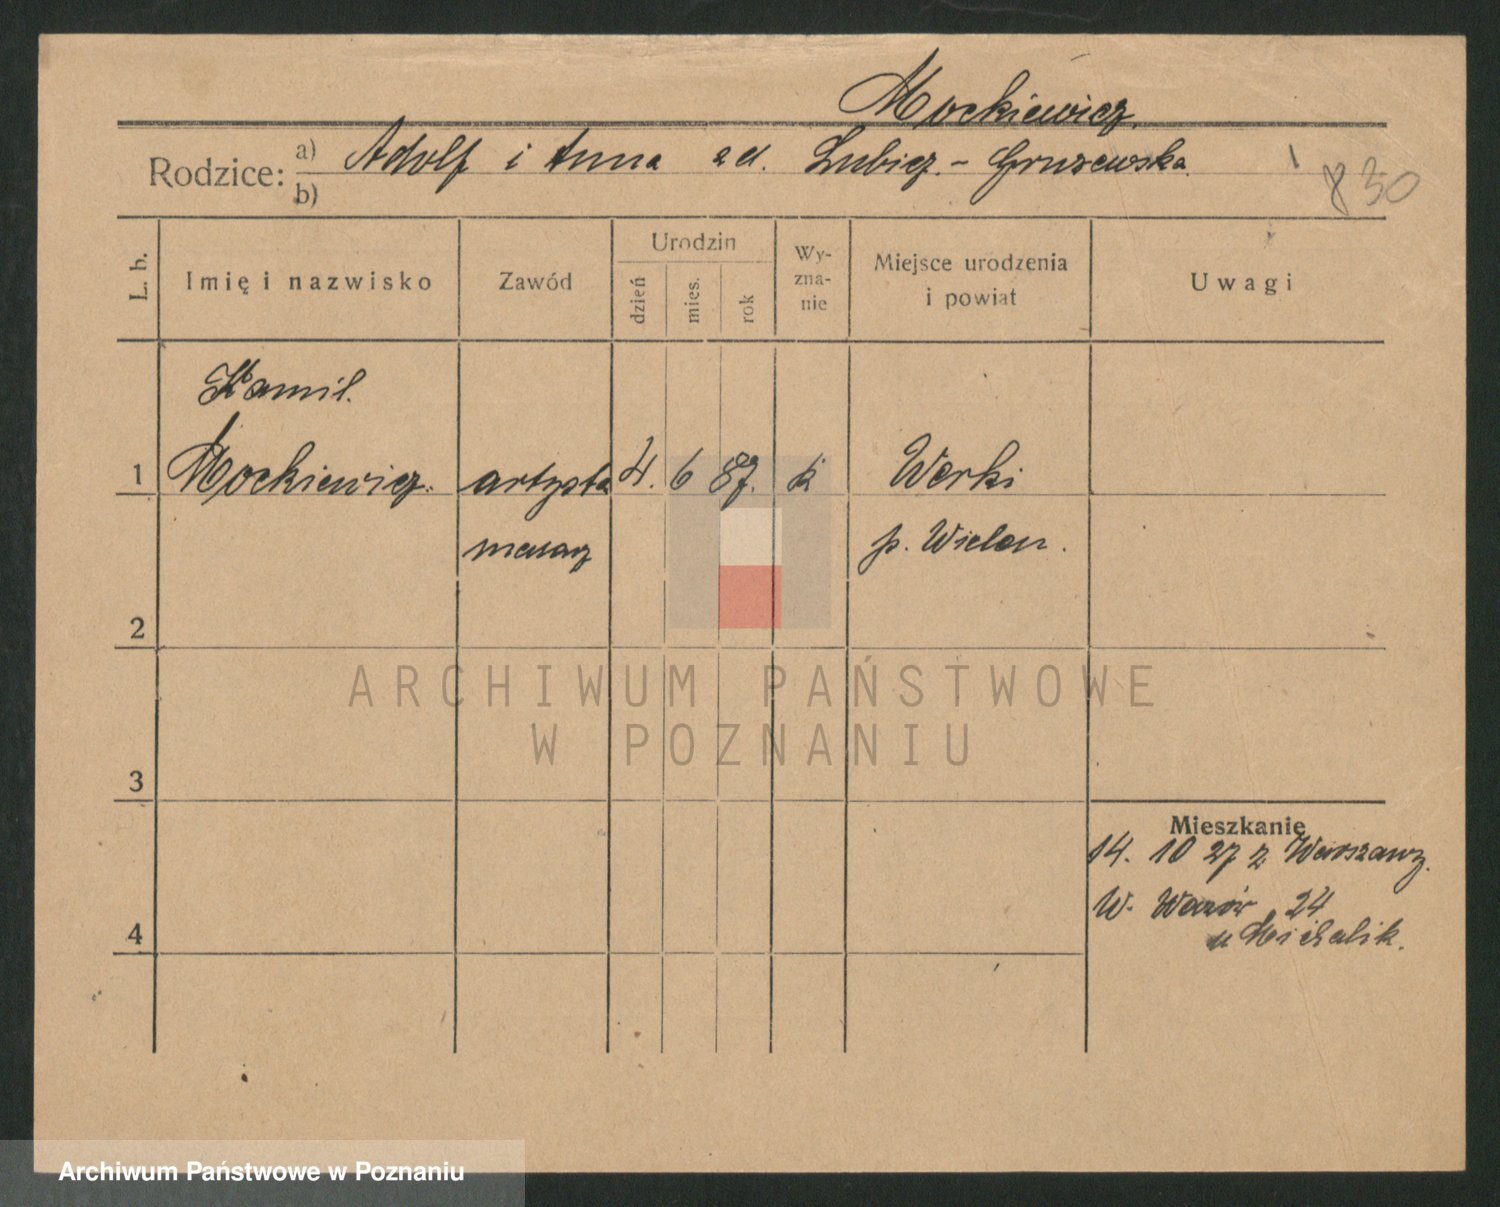 Mockiewicz.
Rodzice: a) Adolf i Anna zd. Lubicz - Gruzewska.
b)
830
L. b.
Imię i nazwisko
Zawód
Urodzin
dzień
mies.
rok
Wy-
zna-
nie
Miejsce urodzenia
i powiat
Uwagi
Kamil.
1 Mockiewicz. artysta 4. 6 87. k Werki
p. Wielon.
2
3
4
Mieszkanie
14. 10 27 z Warszawy.
W. Wazów 24
u Michalik.
ARCHIWUM PAŃSTWOWE
W POZNANIU
Archiwum Państwowe w Poznaniu